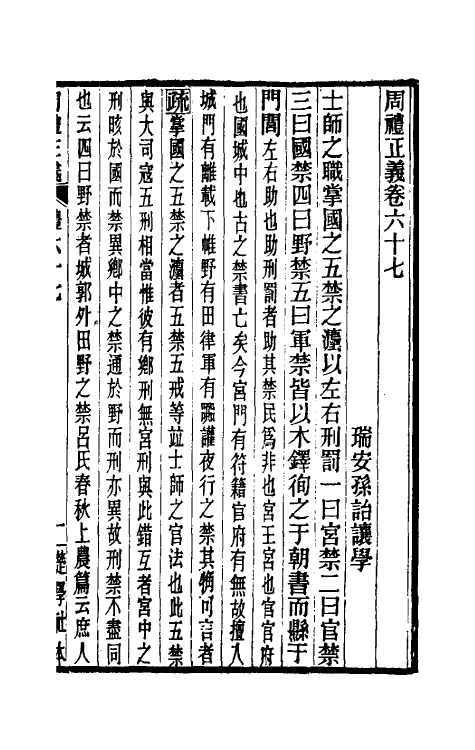 周禮正義卷六十七
瑞安孫詒讓學
士師之職掌國之五禁之灋以左右刑罰一曰宮禁二曰官禁
三曰國禁四曰野禁五曰軍禁皆以木鐸徇之于朝書而縣于
門閭左右助也助刑罰者助其禁民爲非也宮王宮也官官府
也國城中也古之禁書亡矣今宮門有符籍官府有無故擅入
城門有離載下帷野有田律軍有嚻讙夜行之禁其觕可言者
疏掌國之五禁之灋者五禁五戒等竝士師之官法也此五禁
與大司寇五刑相當惟彼有鄉刑無宮刑與此錯互者宮中之
刑晐於國而禁異鄉中之禁通於野而刑亦異故刑禁不盡同
也云四曰野禁者城郭外田野之禁呂氏春秋上農篇云庶人
周禮正義 禮六十七 一 楚學社本